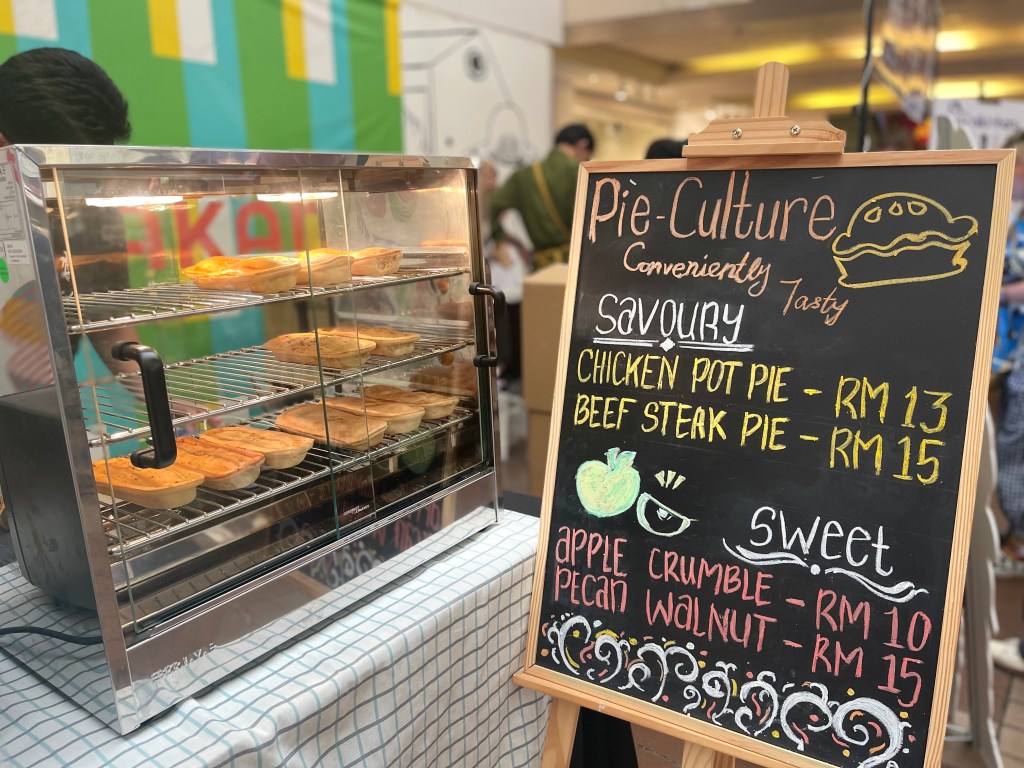 Pie-Culture
Conveniently
Tasty
SAVOURY
CHICKEN POT PIE - RM 13
BEEF STEAK PIE - RM 15
SWEET
APPLE CRUMBLE - RM 10
PECAN WALNUT - RM 15